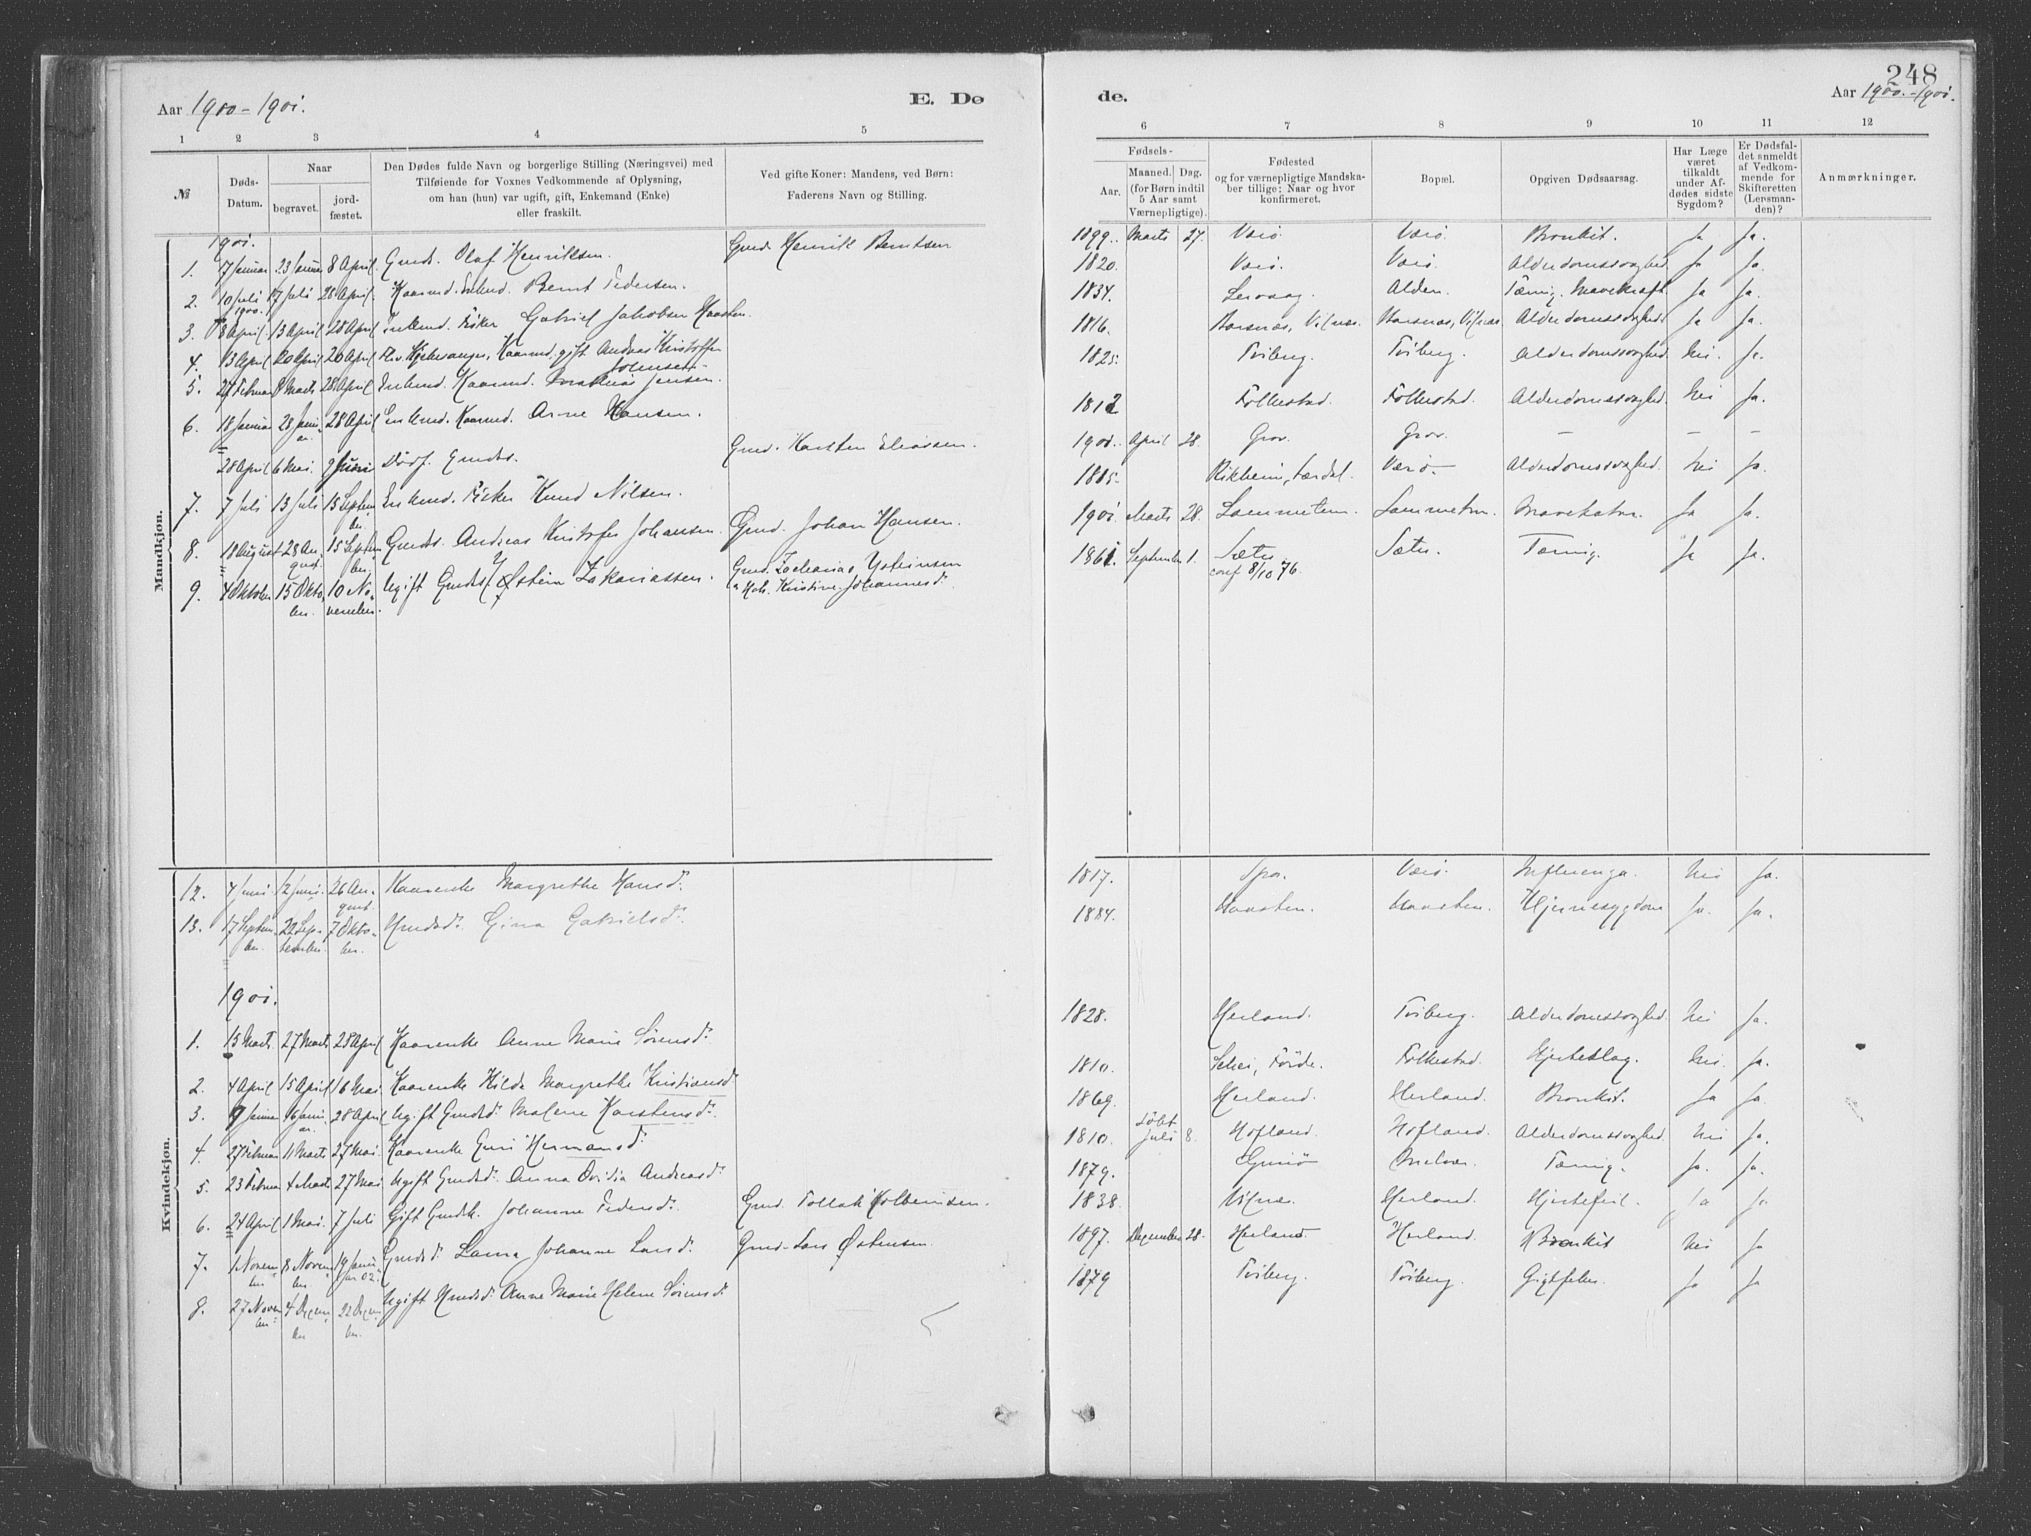 248
Aar 1900-1901.
E. Dø
de.
Aar 1900.-1901.
1 2 3 4 5
6 7 8 9 10 11 12
№
Døds-
Datum.
Naar
begravet.
jord-
fæstet.
Den Dødes fulde Navn og borgerlige Stilling (Næringsvei) med
Tilføiende for Voxnes Vedkommende af Oplysning,
om han (hun) var ugift, gift, Enkemand (Enke)
eller fraskilt.
Ved gifte Koner: Mandens, ved Børn:
Faderens Navn og Stilling.
Fødsels-
Aar.
Maaned. Dag.
(for Børn indtil
5 Aar samt
Værnepligtige).
Fødested
og for værnepligtige Mandska-
ber tillige: Naar og hvor
konfirmeret.
Bopæl.
Opgiven Dødsaarsag.
Har Læge
været
tilkaldt
under Af-
dødes sidste
Sygdom?
Er Dødsfal-
det anmeldt
af Vedkom-
mende for
Skifteretten
(Lensman-
den)?
Anmærkninger.
Mandkjøn.
1901.
1. 17 Januar 23 Januar 8 April. Gmds. Olaf Henriksen. Gmd. Henrik Berntsen 1899. Marts 27. Værø Værø. Bronkit. Ja Ja.
2. 10 Juli 1900. 17 Juli 28 April. Kaarmd. Enkmd. Bernt Pedersen. 1820. Værø. Værø. Alderdomssvaghed Ja Ja.
3. 8 April. 13 April 28 April Enkemd. Fisker Gabriel Jakobsen Haasten. 1834. Alden. Tæring. Mavekræft Ja Ja.
4. 13 April 20 April 20 April Kaarmd. gift Andreas Kristoffer
Johnsen 1816. Barsnæs, Vilnæs. Barsnæs, Vilnæs Alderdomssvaghed Ja Ja.
5. 27 Februar 8 Marts 28 April Enkmd. Kaarmd. Jensen. 1825. Tviberg. Tviberg. Alderdomssvaghed. Nei. Ja.
6. 18 Januar 28 Januar 28 April Enkmd. Kaarmd. Arne Hansen. 1812 Folkestad. Folkestad. Alderdomssvaghed. Nei Ja.
28 April 6 Mai. 9 Juni Dødf. Gmds. Gmd. Karsten Eliassen. 1901. April 28. Grov. Grov. — — —
7. 7 Juli 13 Juli 15 September. Enkmd. Fisker Knud Nilsen. 1815. Rikheim, Lærdal. Værø. Alderdomssvaghed. Nei Ja.
8. 18 August 28 August. 15 September. Gmds. Andreas Kristofer Johansen Gmd. Johan Hansen. 1901. Marts 28. Lammetun. Lammetun. Mavekatar. Ja Ja.
9. 4 Oktober 15 Oktober. 10 November. Ugift Gmds. Østein Zakariassen. Gmd. Zacharias Ysteinsen
Kristine Johannesd. 1861. September 1. Sæter
conf 8/10 76. Sæter. Tæring. Ja Ja.
Kvindekjøn.
12. 4 Juni 12 Juni. 26 August. Kaarenke Margrethe Hansd. 1817. Værø. Influenza. Nei Ja.
13. 17 September. 22 September. 7 Oktober. Hmdsd. Gina Gabrielsd. 1884. Haasten. Haasten. Hjernesygdom Ja. Ja.
1901.
1. 15 Marts. 27 Marts 28 April Kaarenke Anne Marie Sørensd. 1828. Herland. Tviberg. Alderdomssvaghed. Nei Ja.
2. 4 April 15 April 16 Mai. Kaarenke Hilda Margrethe Kristiansd 1810. Førde. Folkestad. Hjerteslag. Nei. Ja.
3. 9 Januar 16 Januar. 28 April Ugift Gmdsd. Malene Karstensd. 1869. Herland. Herland. Bronkit. Ja Ja.
4. 27 Februar 11 Marts 27 Mai. Kaarenke Guri Hermansd. 1810. Døbt
Juli 8. Hofland. Hofland. Alderdomssvaghed Nei Ja.
5. 23 Februar 4 Marts 27 Mai Ugift Gmdsd. Anna Ovidia Andreasd. 1879. Tæring. Ja. Ja.
6. 24 April 1 Mai. 7 Juli Gift Gmdk. Johanne Pedersd. Gmd. Tollak Kolbeinsen. 1838. Vilnæs. Herland. Hjertefeil. Ja Ja
7. 1 November 8 November 19 Januar 02. Gmdsd. Johanne Larsd. Gmd. Lars Østensen. 1897. Dezember 28. Herland Herland. Bronkit Nei Ja
8. 27 November 4 Dezember 22 Dezember. Ugift Hmdsd. Anne Marie Helene Sørensd. 1879 Tviberg. Tviberg. Gigtfeber. Ja Ja